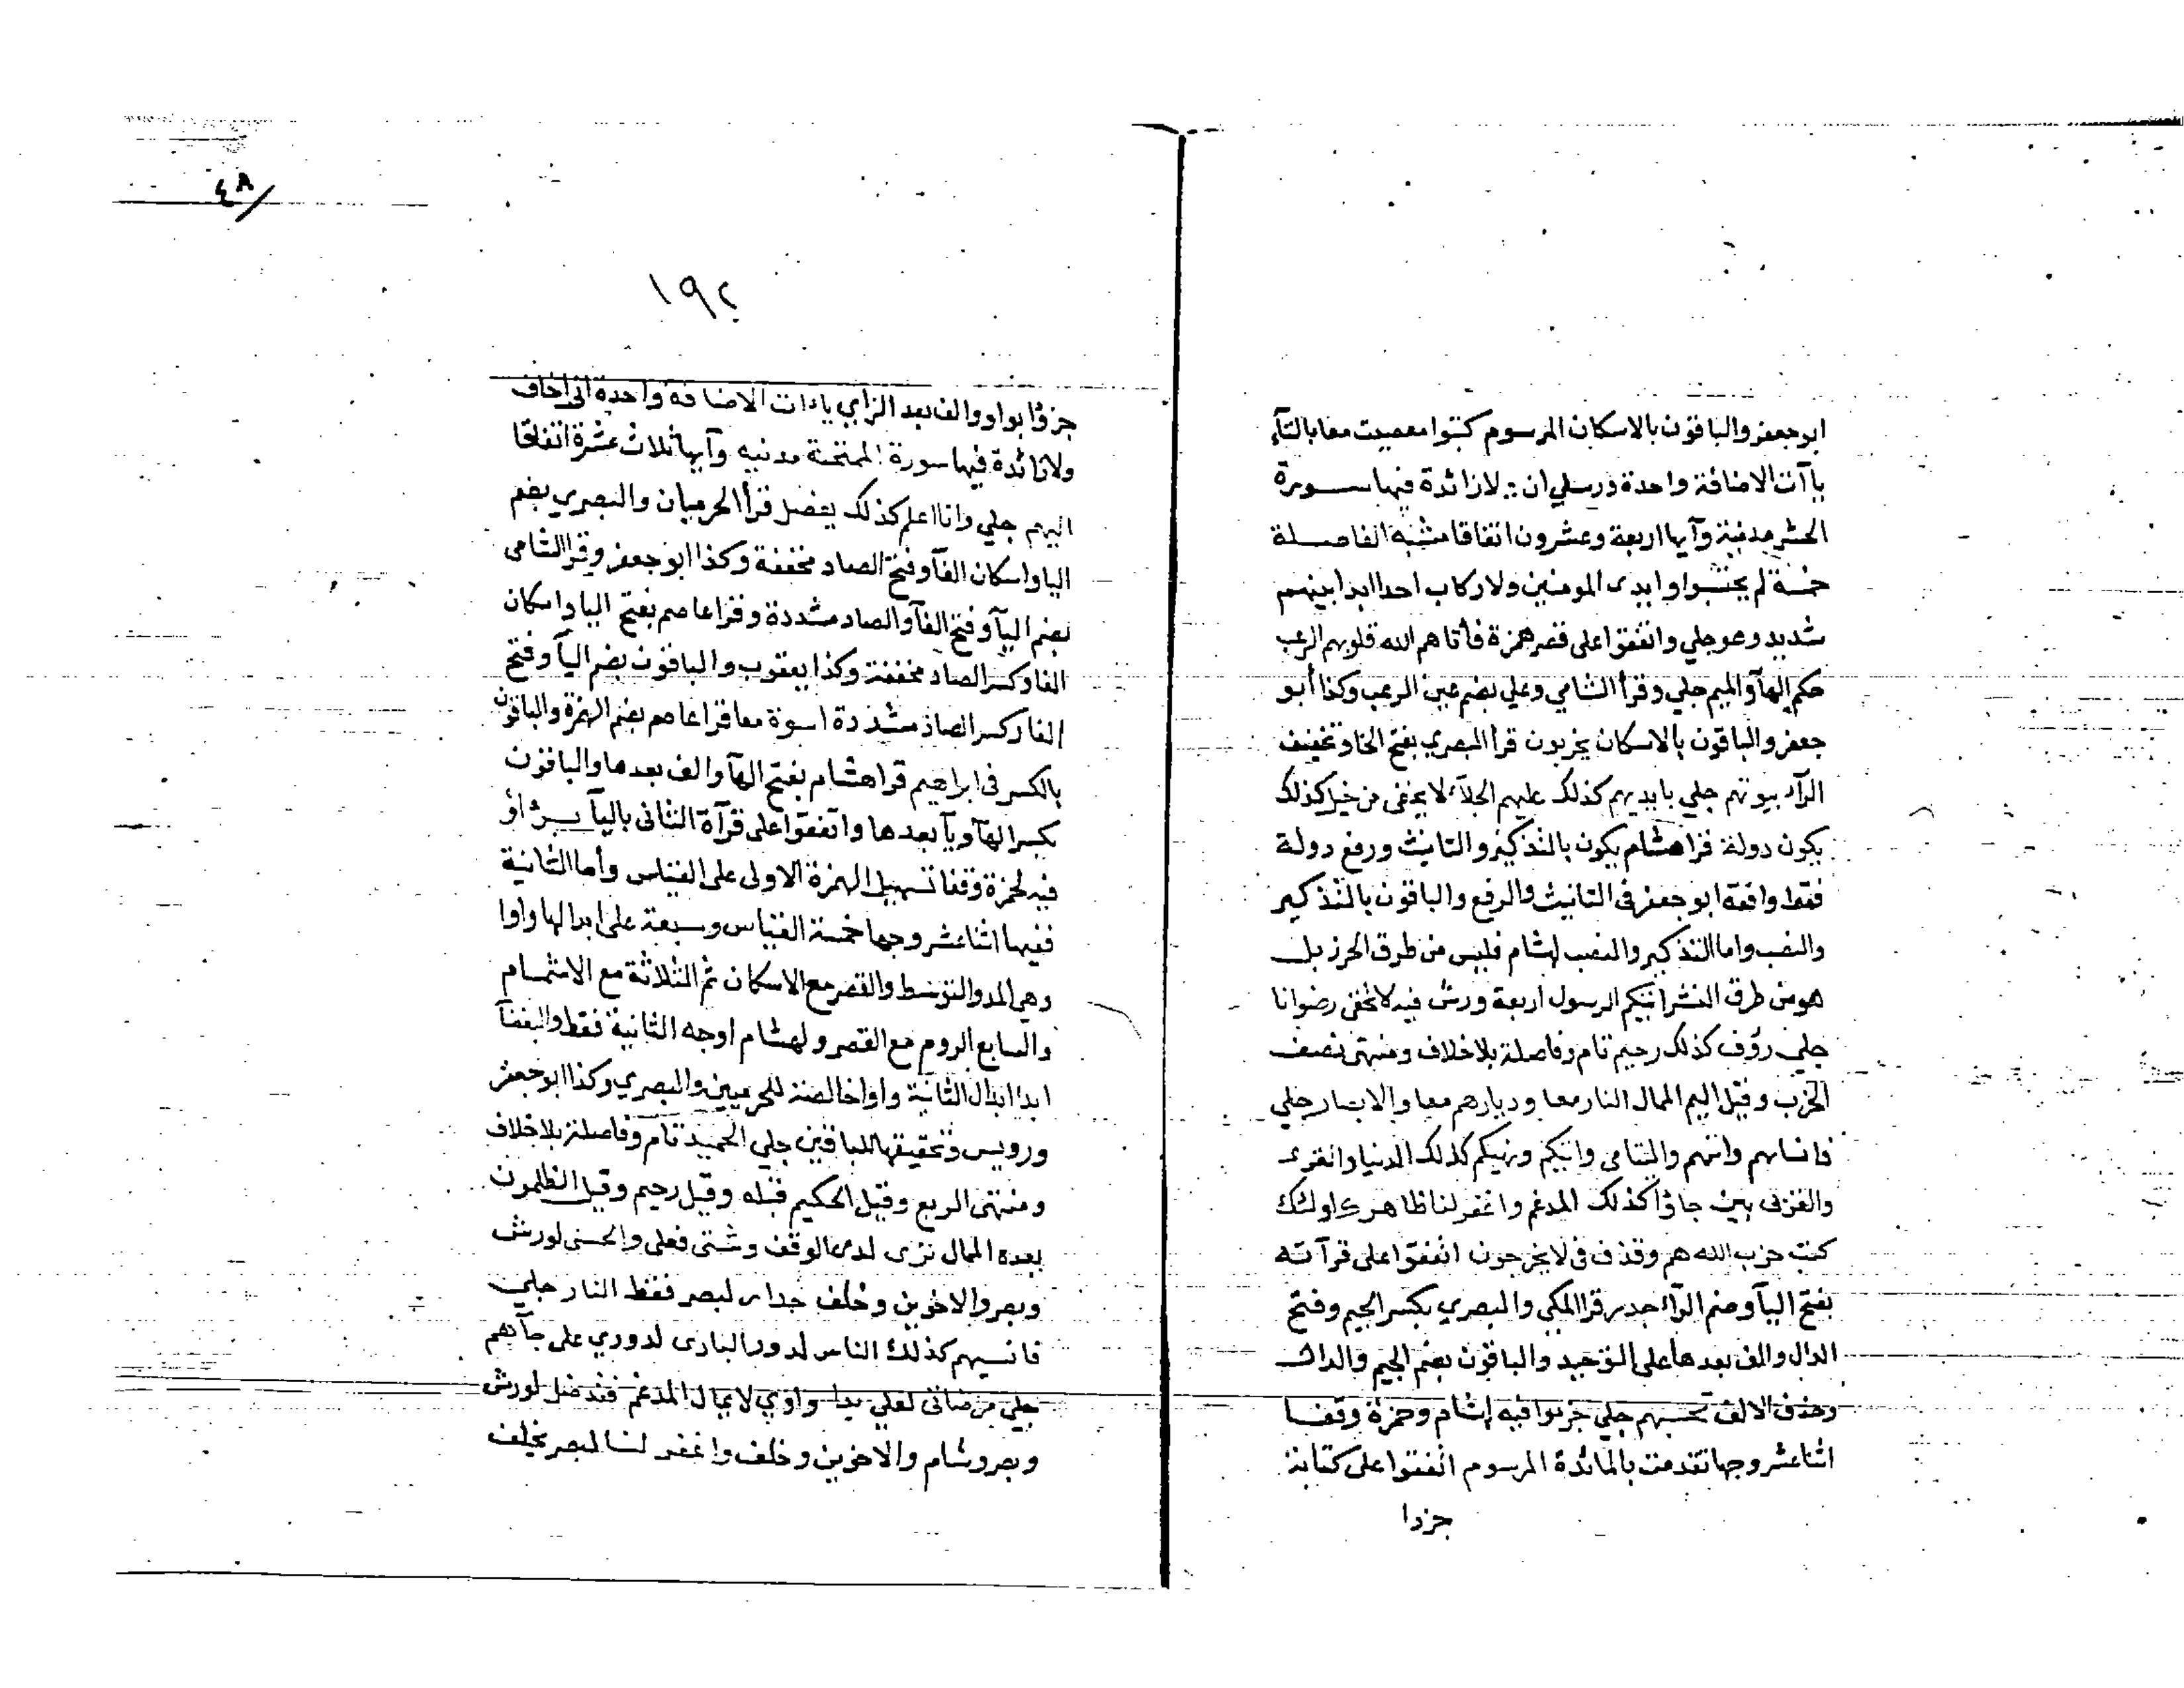 ابو جعفر والباقون بالاسكان المرسوم كتبوا معصيت معا بالتآء
يآآت الاضافة واحدة ورسلي ان ؞ لا زائدة فيها ســورة
الحشر مدنية وآيها اربعة وعشرون اتفاقا مشبه الفاصــلة
خمسة لم يحتسبوا وايدى المومنين ولا ركاب احدا ابدا بينهم
شديد وهو جلي واتفقوا على قصر همزة فأتاهم الله قلوبهم الرعب
حكم الهآ والميم جلي وقرأ الشامي وعلي بضم عين الرعب وكذا أبو
جعفر والباقون بالاسكان يخربون قرأ البصري بفتح الخا وتخفيف
الرآء بيوتهم جلي بايديهم كذلك عليهم الجلآء لا يخفى من خيل كذلك
يكون دولة قرا هشام يكون بالتذكير والتانيث ورفع دولة
فقط وافقه ابو جعفر فى التانيث والرفع والباقون بالتذكير
والنصب واما التذكير والنصب لهشام فليس من طرق الحرز بل
هو من طرق النشر اتيكم الرسول اربعة ورش فيه لا تخفى رضوانا
جلي رؤف كذلك رحيم تام وفاصلة بلا خلاف ومنتهى نصف
الحزب وقيل اليم الممال النار معا وديارهم معا والابصار جلي
فانساهم واتهم واليتامى واتيكم ونهيكم كذلك الدنيا والقرى
والقربى بين جاؤا كذلك المدغم واغفر لنا ظاهر ك اولئك
كتب حزب الله هم وقذف فى لا يخرجون اتفقوا على قرآته
بفتح اليآ وضم الرآء جدر قرا المكي والبصري بكسر الجيم وفتح
الدال والف بعدها على التوحيد والباقون بضم الجيم والدال
وحذف الالف تحسبهم جلي جزؤا فيه لهشام وحمزة وقفا
اثنا عشر وجها تقدمت بالمائدة المرسوم اتفقوا على كتابة
جزوا
٤٨
١٩٢
جزؤا بواو والف بعد الزاي ياءات الاضافة واحدة انى اخاف
ولا زائدة فيها سورة الممتحنة مدنيه وآيها ثلاث عشرة اتفاقا
اليهم جلي وانا اعلم كذلك يفصل قرأ الحرميان والبصري بضم
اليا واسكان الفآ وفتح الصاد مخففة وكذا ابو جعفر وقرا الشامى
بضم اليآ وفتح الفآ والصاد مشددة وقرا عاصم بفتح اليا واسكان
الفا وكسر الصاد مخففة وكذا يعقوب والباقون بضم اليآ وفتح
الفا وكسر الصاد مشددة اسوة معا قرا عاصم بضم الهمزة والباقون
بالكسر فى ابراهيم قرا هشام بفتح الهآ والف بعدها والباقون
بكسر الهآ ويآ بعدها واتفقوا على قرآة الثانى باليآ برؤاؤ
فيه لحمزة وقفا تسهيل الهمزة الاولى على القياس وأما الثانية
ففيها اثنا عشر وجها خمسة القياس وسبعة على ابدالها واوا
وهي المد والتوسط والقصر مع الاسكان ثم الثلاثة مع الاشمام
والسابع الروم مع القصر ولهشام اوجه الثانية فقط والبغضآ
ابدا ابدال الثانية واوا خالصة للحرميين والبصري وكذا ابو جعفر
ورويس وتحقيقها للباقين جلي الحميد تام وفاصلة بلا خلاف
ومنتهى الربع وقيل الحكيم قبله وقيل رحيم وقيل الظلمون
بعده الممال نرى لدى الوقف وشتى فعلى والحسنى لورش
وبصر والاخوين وخلف جدار لبصر فقط النار جلي
فانسيهم كذلك الناس لدور البارى لدوري على جآءهم
جلي مرضاتى لعلي بدا واوي لا يمال المدغم فقد ضل لورش
وبصر وشام والاخوين وخلف واغفر لنا لبصر بخلف